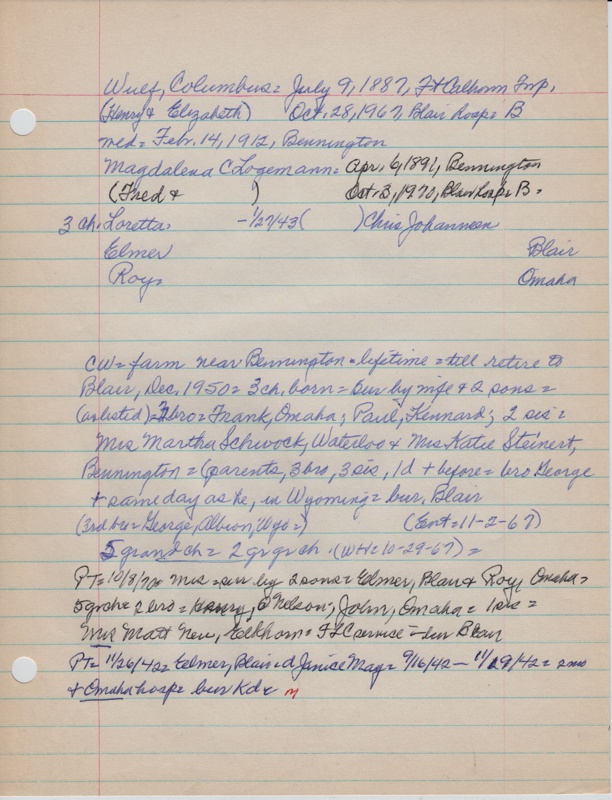 Wulf, Columbus = July 9, 1887, Ft Calhoun Twp,
(Henry & Elizabeth) Oct. 28, 1967, Blair hosp = B
med = Febr. 14, 1912, Bennington
Magdalena C Logemann = Apr. 6, 1891, Bennington
(Fred & ) Oct. 3, 1970, Blair hosp = B =
3 ch. Loretta = - 1/27/43 ( ) Chris Johannsen
Elmer Blair
Roy = Omaha
CW = farm near Bennington = lifetime = till retire to
Blair, Dec. 1950 = 3 ch. born = sur by wife & 2 sons =
(as listed) = bro = Frank, Omaha; Paul, Kennard; 2 sis =
Mrs Martha Schwock, Waterloo & Mrs Katie Steinert,
Bennington = (parents, 3 bro, 3 sis, 1d + before = bro George
+ same day as he, in Wyoming = bur, Blair
(3rd bro = George, Albion, Wyo =) (Ent = 11-2-67)
5 grandch = 2 gr gr ch. (WH = 10-29-67) =
PT = 10/8/70 = Mrs = sur by 2 sons = Elmer, Blair & Roy, Omaha =
5 grch = 2 bro = Henry, Nelson; John, Omaha = 1 sis =
Mrs Matt New, Elkhorn = Ft C = bur Blair
PT = 11/26/42 = Elmer, Blair = d Janice Mag = 9/16/42 - 11/19/42 = 2 mo
+ Omaha hosp = bur Kd &